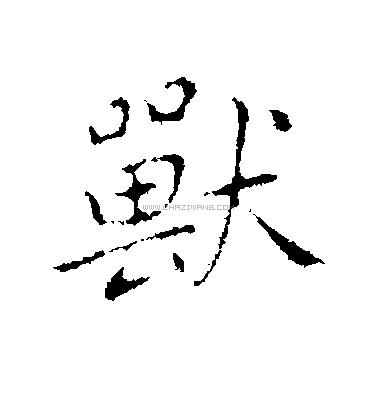 獸
WWW.CHAZIWANG.COM